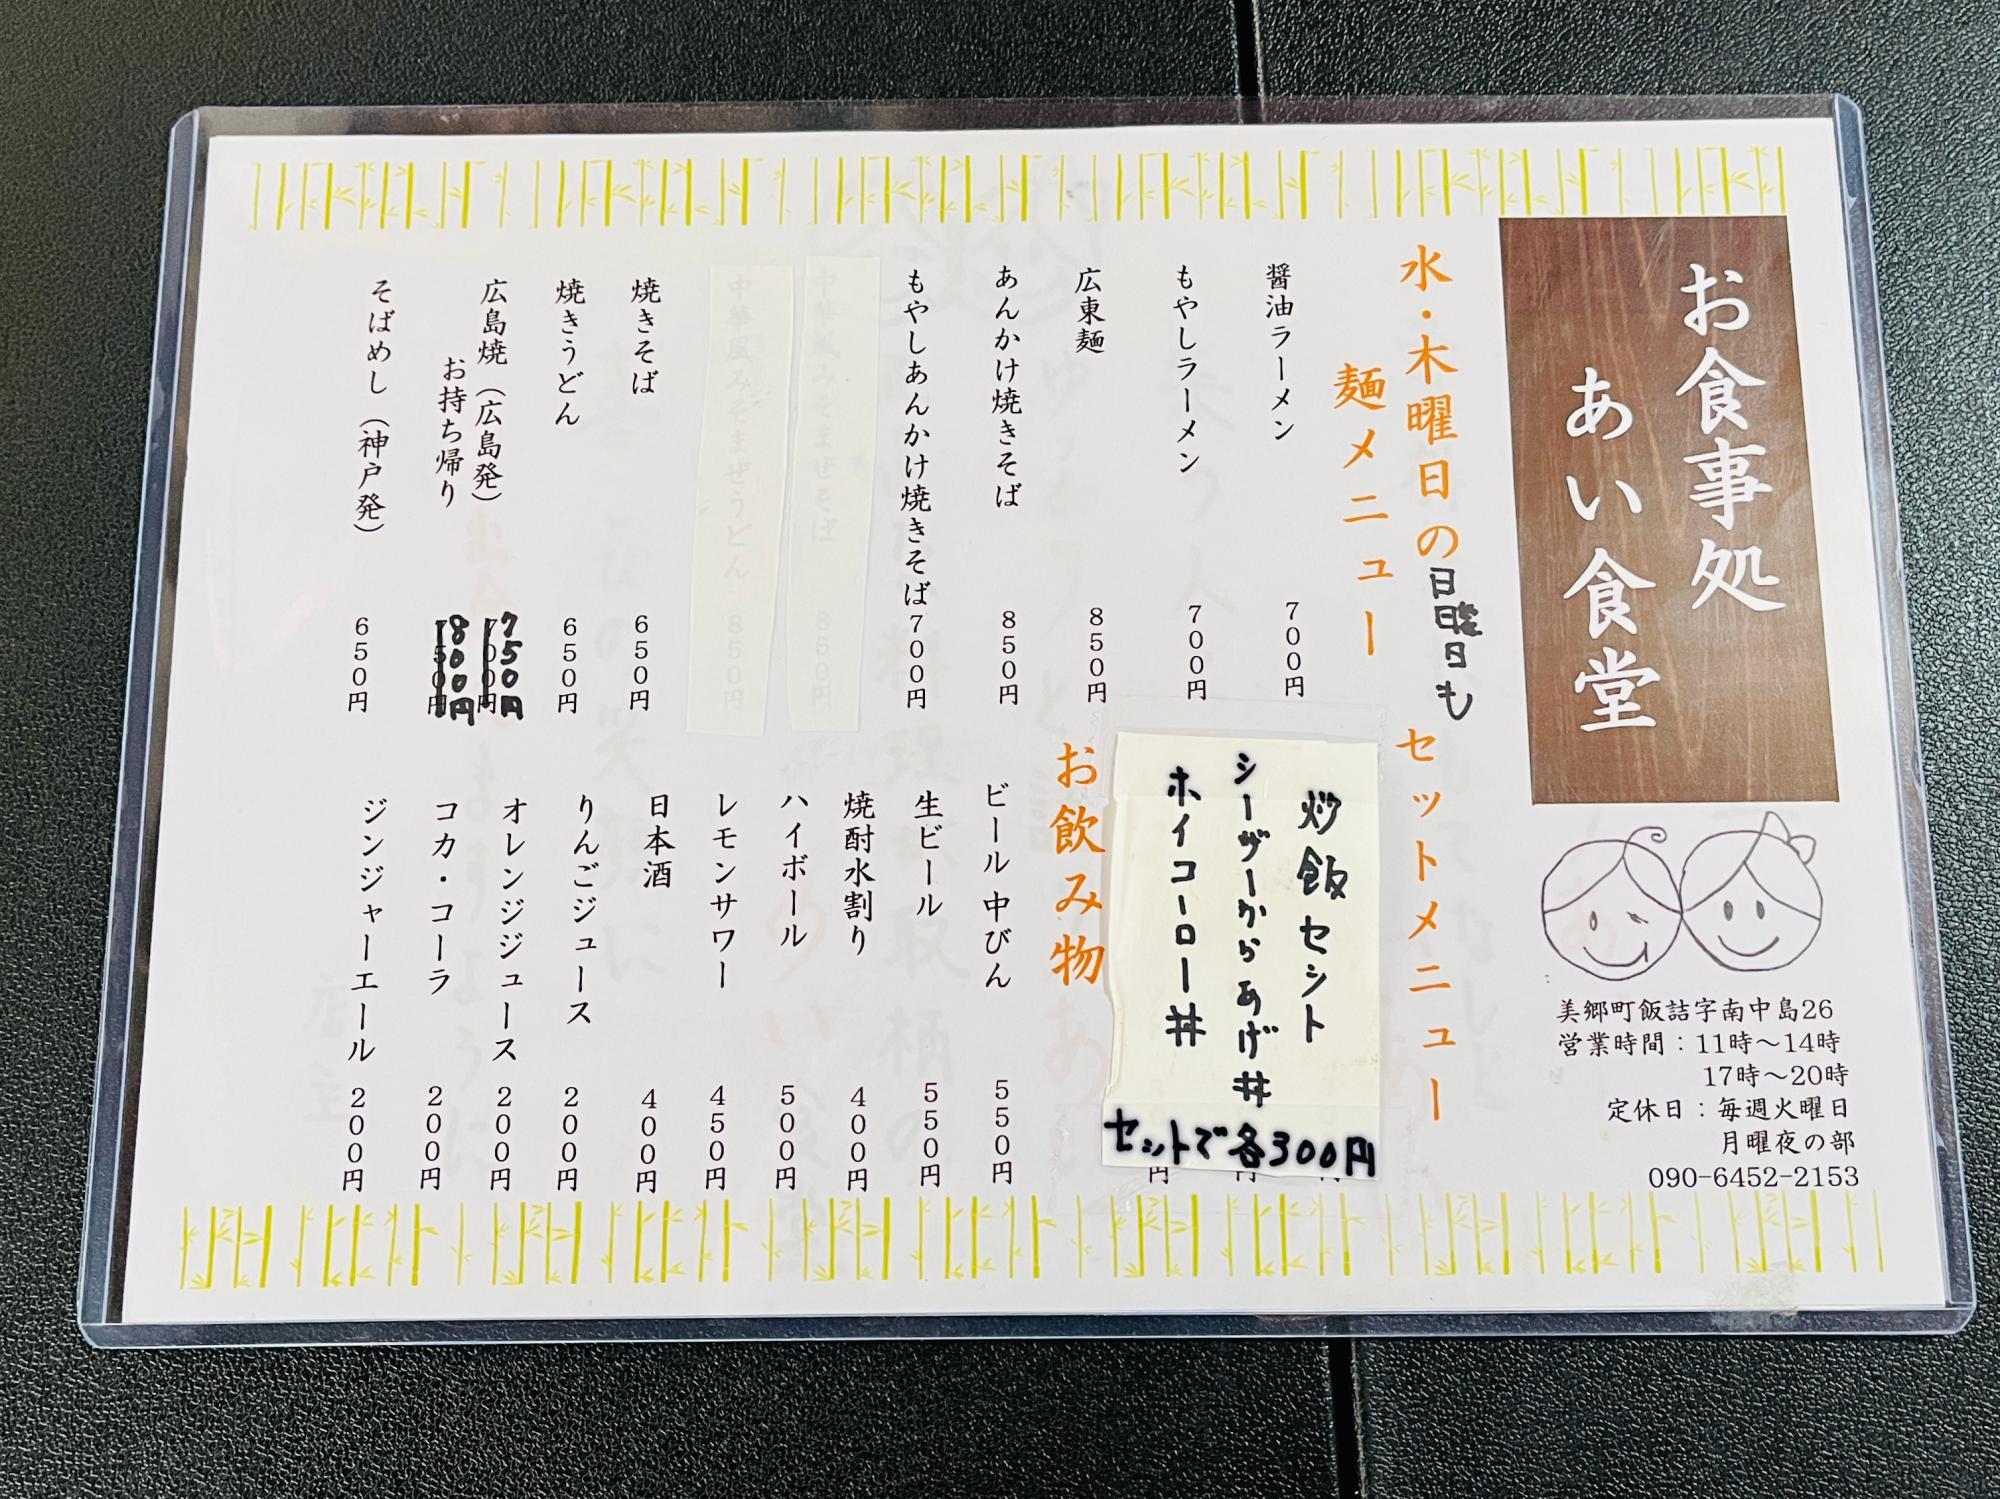 お食事処
あい食堂
美郷町飯詰字南中島26
営業時間：11時～14時
17時～20時
定休日：毎週火曜日
月曜夜の部
090-6452-2153
水・木曜日の
日曜日も
麺メニュー
醤油ラーメン 700円
もやしラーメン 700円
広東麺 850円
あんかけ焼きそば 850円
もやしあんかけ焼きそば 700円
中華風みそまぜそば 850円
中華風みそまぜうどん 850円
焼きそば 650円
焼きうどん 650円
広島焼（広島発） 750円
お持ち帰り 800円
そばめし（神戸発） 650円
セットメニュー
炒飯セット
シーザーからあげ丼
ホイコーロー丼
セットで各300円
お飲み物
ビール 中びん 550円
生ビール 550円
焼酎水割り 400円
ハイボール 500円
レモンサワー 450円
日本酒 400円
りんごジュース 200円
オレンジジュース 200円
コカ・コーラ 200円
ジンジャーエール 200円